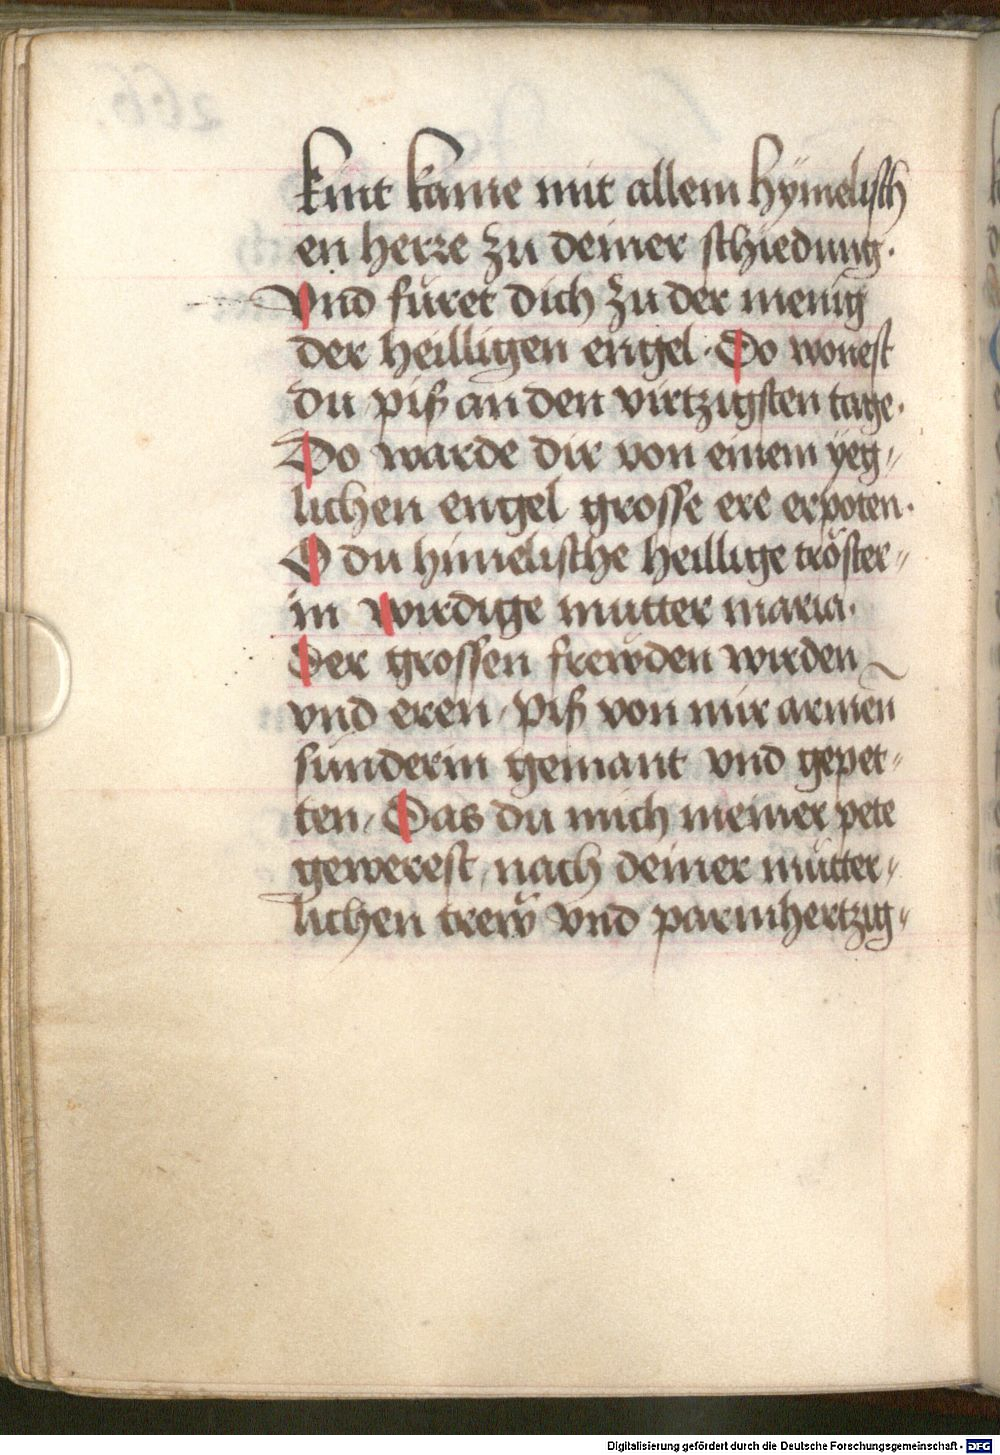 kint kame mit allem hÿmelisch
en herze zu deiner schiedung·
Vnd füret dich zu der menig
der heilligen engel· Do wonest
du piß an den virtzigsten tage·
Do warde dir von einem yeg„
lichen engel grosse ere erpoten·
O du himelische heillige tröster„
in wirdige mutter maria·
Der grossen frewden wirden
vnd eren, piß von mir armen
sunderin gemant vnd gepet„
ten, Das du mich meiner pete
gewerest, nach deiner mütter„
lichen trew vnd parmhertzig„
Digitalisierung gefördert durch die Deutsche Forschungsgemeinschaft - DFG